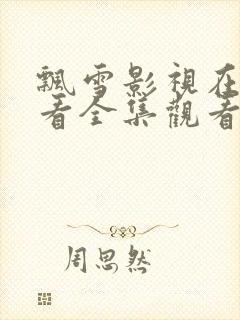 飄雪影視在
看全集觀看
周思然